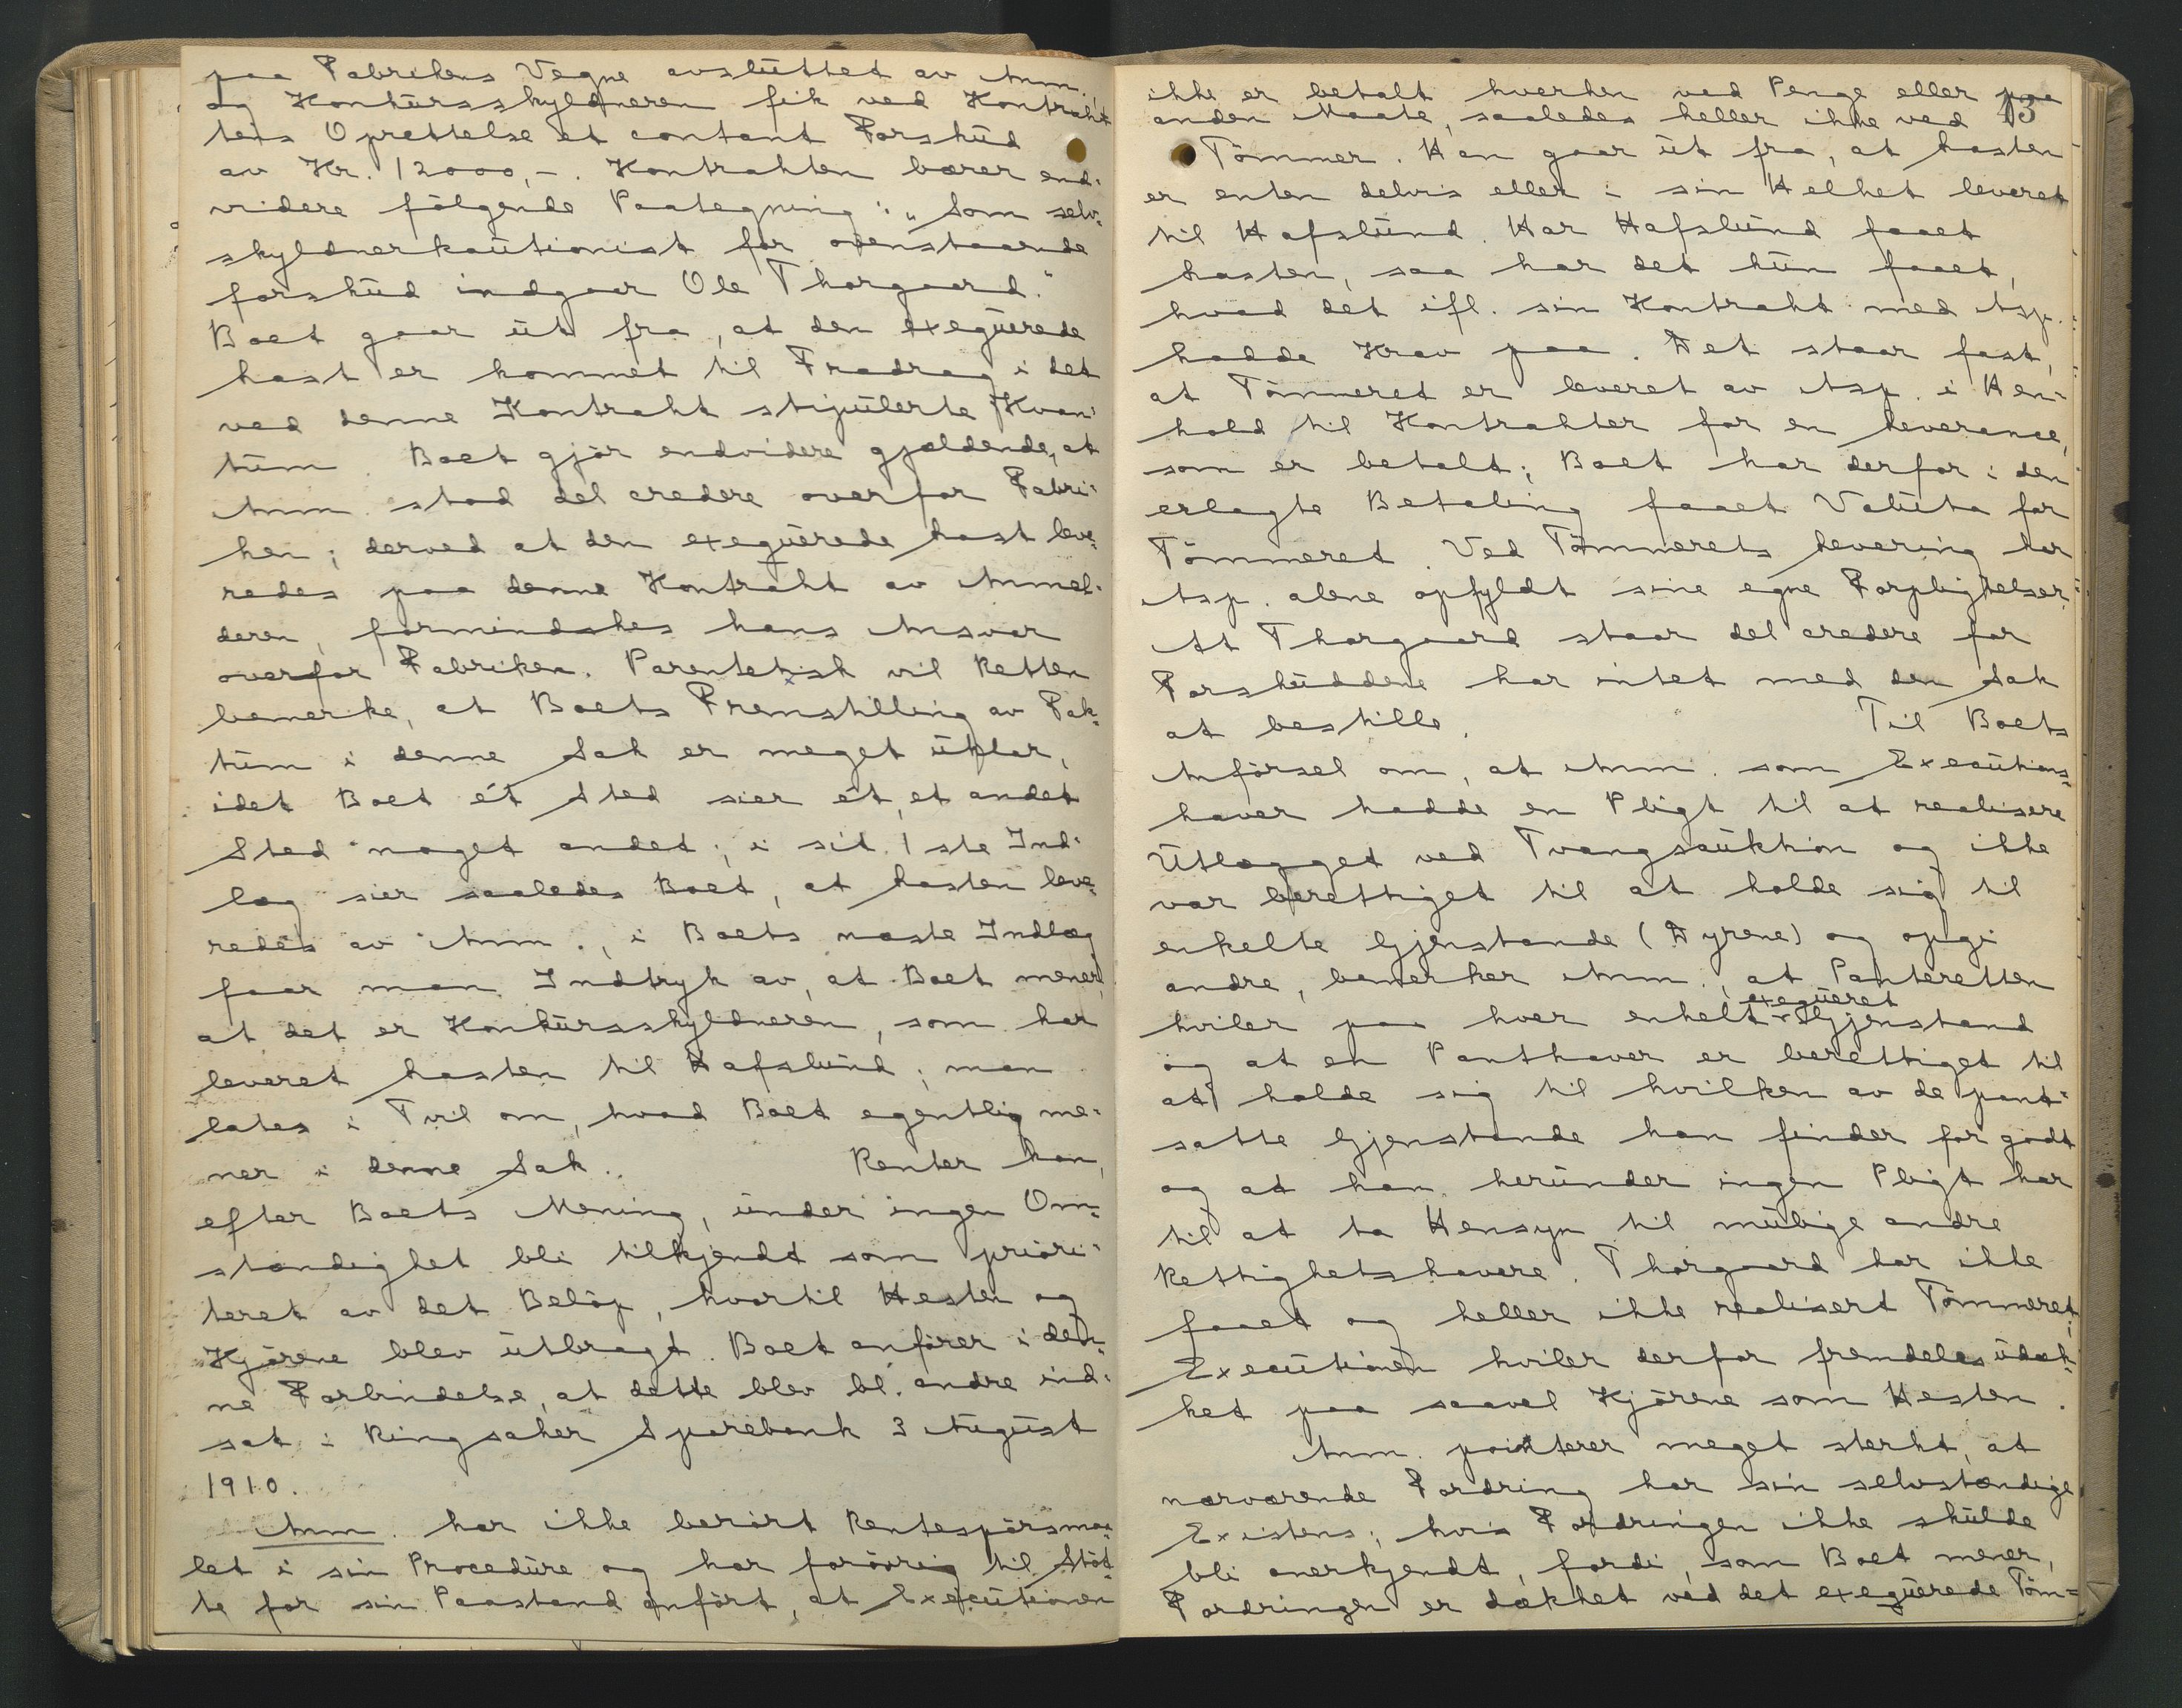 paa Fabrikens Vegne avsluttet av Anm.,
og Konkursskyldneren fik ved Kontrakt
tens Oprettelse et contant Forskud
av Kr. 12000,-. Kontrakten bærer end-
videre følgende Paategning: „Som selv-
skyldnerkautionist for ovenstaaende
forskud indgaar Ole Thorgaard."
Boet gaar ut fra, at den exeqverede
Last er kommet til Fradrag i det
ved denne Kontrakt stipulerte Kvan-
tum. Boet gjör endvidere gjældende, at
Anm. stod del credere overfor Fabri-
ken; derved at den exeqverede Last leve-
redes paa denne Kontrakt av Anmel-
deren, formindskes hans Ansvar
overfor Fabriken. Parentetisk vil Retten
bemerke, at Boets Fremstilling av Fak-
tum i denne Sak er meget uklar,
idet Boet ét Sted sier ét, et andet
Sted noget andet; i sit 1ste Ind-
læg sier saaledes Boet, at Lasten leve-
redes av Anm., i Boets næste Indlæg
faar man Indtryk av, at Boet mener,
at det er Konkursskyldneren, som har
leveret Lasten til Hafslund; man
lates i Tvil om, hvad Boet egentlig me-
ner i denne Sak. Renter kan,
efter Boets Mening, under ingen Om-
stændighet bli tilkjendt som priori-
teret av det Belöp, hvortil Hesten og
Kjörene blev utbragt. Boet anförer i den-
ne Forbindelse, at dette blev bl. andre ind-
sat i Ringsaker Sparebank 3 August
1910.
Anm. har ikke berört Rentespörsmaa-
let i sin Procedure og har forövrig til Stöt-
te for sin Paastand anfört, at Executionen
43
ikke er betalt hverken ved Penge eller paa
anden Maate, saaledes heller ikke ved
Tömmer. Han gaar ut fra, at Lasten
er enten delvis eller i sin Helhet leveret
til Hafslund. Har Hafslund faaet
Lasten, saa har det kun faaet,
hvad det ifl. sin Kontrakt med Asp.
hadde Krav paa. Det staar fast,
at Tömmeret er leveret av Asp. i Hen-
hold til Kontrakter for en Leverance,
som er betalt; Boet har derfor i den
erlagte Betaling faaet Valuta for
Tömmeret. Ved Tömmerets Levering har
Asp. alene opfyldt sine egne Forpligtelser.
At Thorgaard staar del credere for
Forskuddene har intet med den Sak
at bestille. Til Boets
Anförsel om, at Anm. som Executions-
haver hadde en Pligt til at realisere
Utlægget ved Tvangsauktion og ikke
var berettiget til at holde sig til
enkelte Gjenstande (Dyrene) og opgi
andre, bemerker Anm., at Panteretten
hviler paa hver enkelt exeqveret Gjenstand
og at en Panthaver er berettiget til
at holde sig til hvilken av de pant-
satte Gjenstande han finder for godt
og at han herunder ingen Pligt har
til at ta Hensyn til mulige andre
Rettighetshavere. Thorgaard har ikke
faaet og heller ikke realisert Tömmeret;
Executionen hviler derfor fremdeles udæk-
ket paa saavel Kjörene som Hesten.
Anm. pointerer meget sterkt, at
nærværende Fordring har sin selvstændige
Existens; hvis Fordringen ikke skulde
bli anerkjendt, fordi, som Boet mener,
Fordringen er dækket ved det exeqverede Töm-